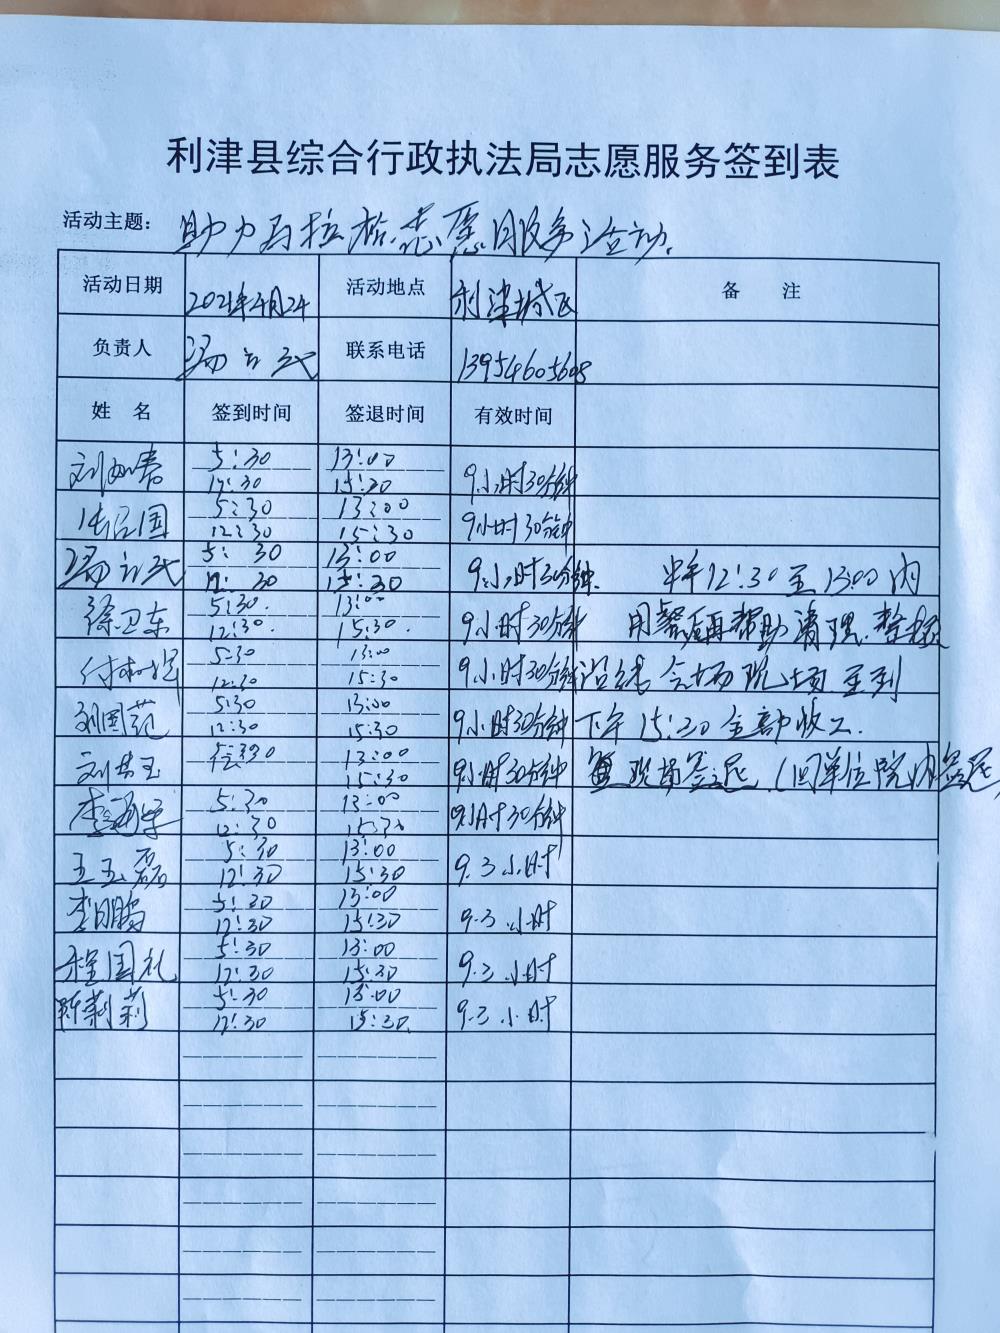 利津县综合行政执法局志愿服务签到表
活动主题： 助力马拉松志愿服务活动.
活动日期 2021年4月24 活动地点 利津城区 备 注
负责人 冯立武 联系电话 13954605608
姓 名 签到时间 签退时间 有效时间
5:30 13:00
12:30 15:30 9小时30分钟
5:30 13:00
国 12:30 15:30 9小时30分钟
5:30 13:00
12:30 15:30 9小时30分钟. 中午12:30至13:00内
5:30. 13:00
徐卫东 12:30. 15:30. 9小时30分钟 用餐后再帮助清理.整
5:30 13:00
12:30 15:30 9小时30分钟 会场现场至到
5:30 13:00
刘国范 12:30 15:30 9小时30分钟 下午15:30全部收工.
5:30 13:00
刘 玉 15:30 9小时30分钟 现场签退.(回单位院内签退
5:30 13:00
李 12:30 15:30 9小时30分钟
5:30 13:00
王玉磊 12:30 15:30 9.3小时
5:30 13:00
李月鹏 12:30 15:30 9.3小时
5:30 13:00
程国礼 12:30 15:30 9.3小时
5:30 13:00
陈莉莉 12:30 15:30 9.3小时